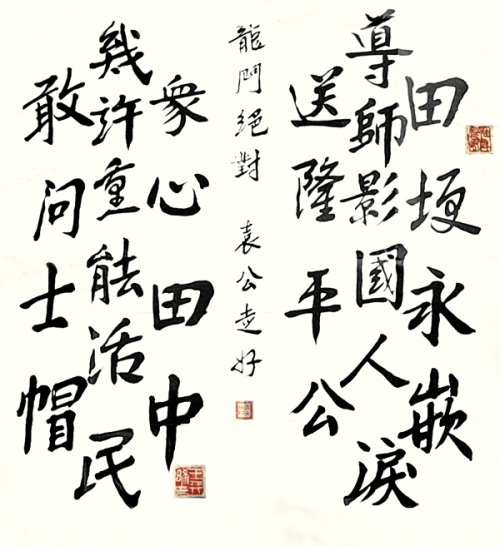 田埂永嵌
導師影國人淚
送隆平公
敢問士帽
幾許重能活民
眾心田中
龍門絕對 袁公走好